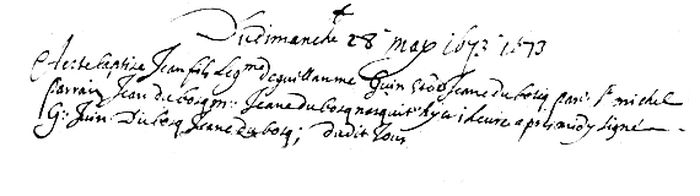 Du dimanche 28 may 1673 1673
A este baptize Jean fils legme de guillaume Guin et de Jeane du bosq par: St michel
parrain Jean du bosq mne: Jeane du bosq nasquit hyer 1 heure apres midy signé
G: Guin Dubosq Jeane du bosq; dudit Jour